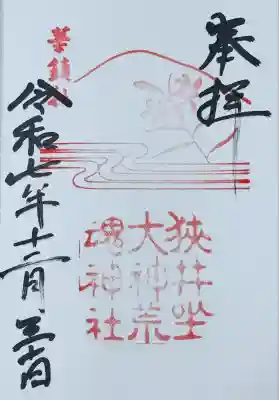 奉拝
狭井坐
大神荒
魂神社
華鎮社
令和七年十二月三十日